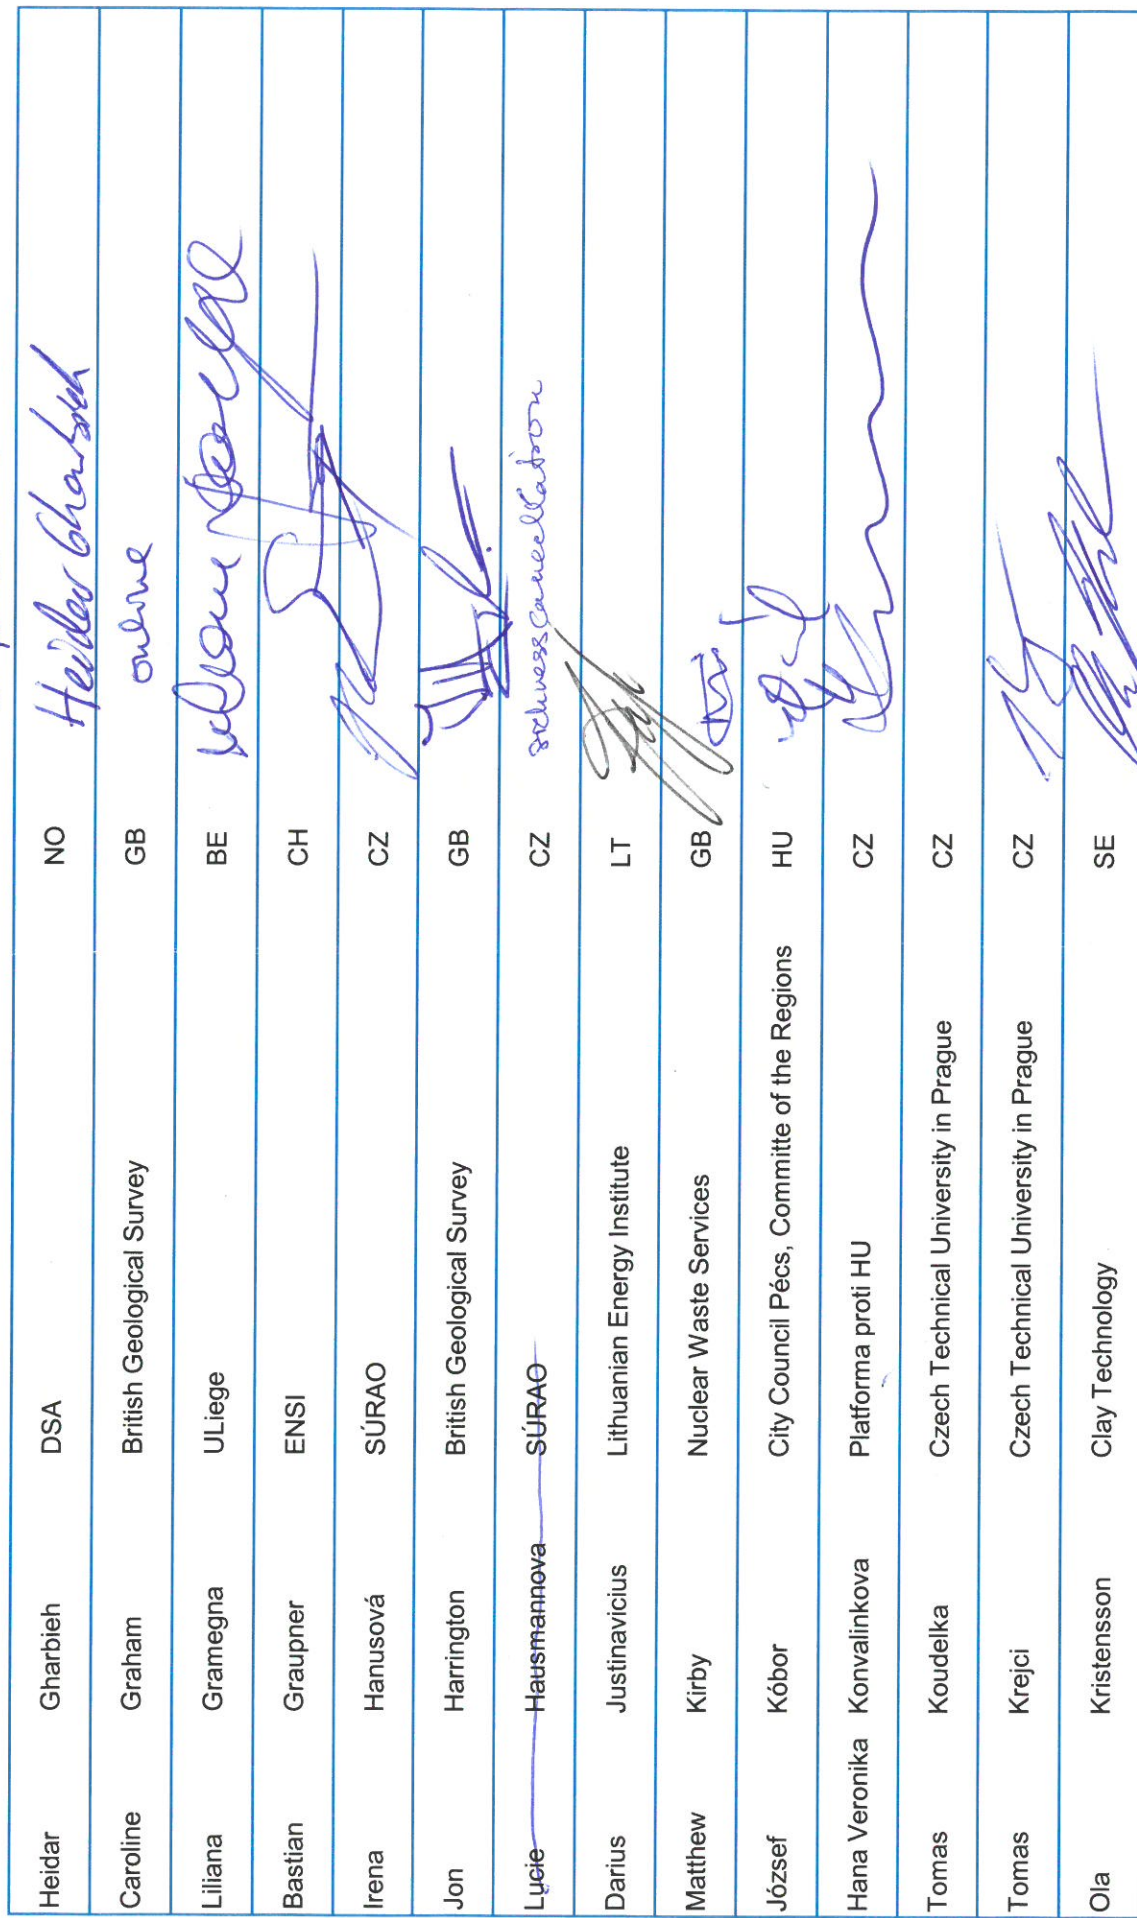 Heidar Gharbieh DSA NO Heidar Gharbieh
Caroline Graham British Geological Survey GB online
Liliana Gramegna ULiege BE
Bastian Graupner ENSI CH
Irena Hanusová SÚRAO CZ
Jon Harrington British Geological Survey GB
Lucie Hausmannova SÚRAO CZ sickness cancellation
Darius Justinavicius Lithuanian Energy Institute LT
Matthew Kirby Nuclear Waste Services GB
József Kóbor City Council Pécs, Committe of the Regions HU
Hana Veronika Konvalinkova Platforma proti HU CZ
Tomas Koudelka Czech Technical University in Prague CZ
Tomas Krejci Czech Technical University in Prague CZ
Ola Kristensson Clay Technology SE